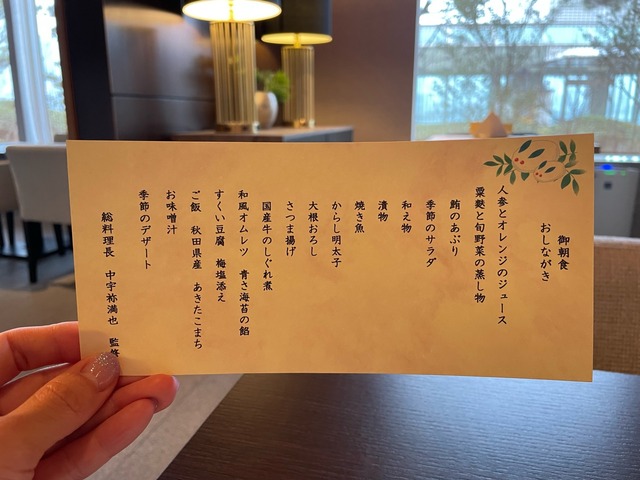 御朝食
おしながき
人参とオレンジのジュース
粟麩と旬野菜の蒸し物
鮪のあぶり
季節のサラダ
和え物
漬物
焼き魚
からし明太子
大根おろし
さつま揚げ
国産牛のしぐれ煮
和風オムレツ 青さ海苔の餡
すくい豆腐 梅塩添え
ご飯 秋田県産 あきたこまち
お味噌汁
季節のデザート
総料理長 中宇祢満也 監修